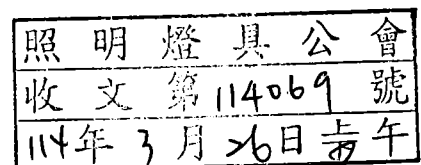 照明燈具公會
收文第114069號
114年3月26日上午